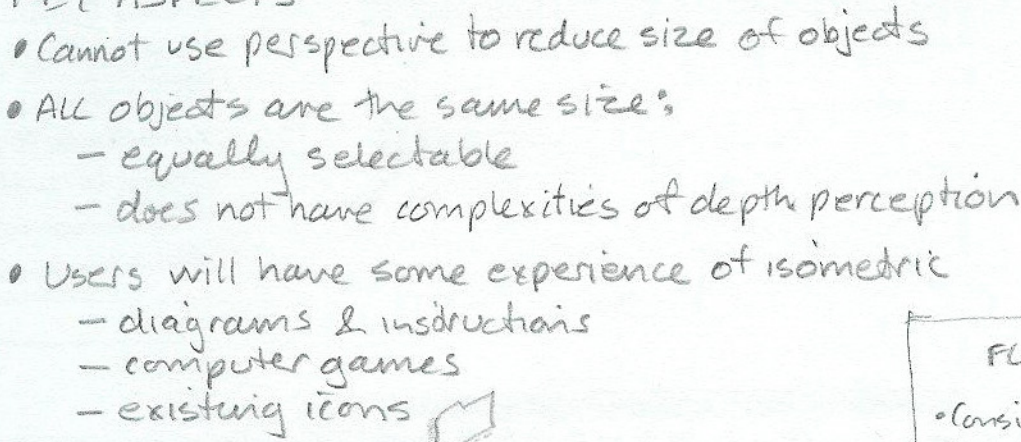 ASPECTS
• Cannot use perspective to reduce size of objects
• All objects are the same size:
– equally selectable
– does not have complexities of depth perception
• Users will have some experience of isometric
– diagrams & instructions
– computer games
– existing icons